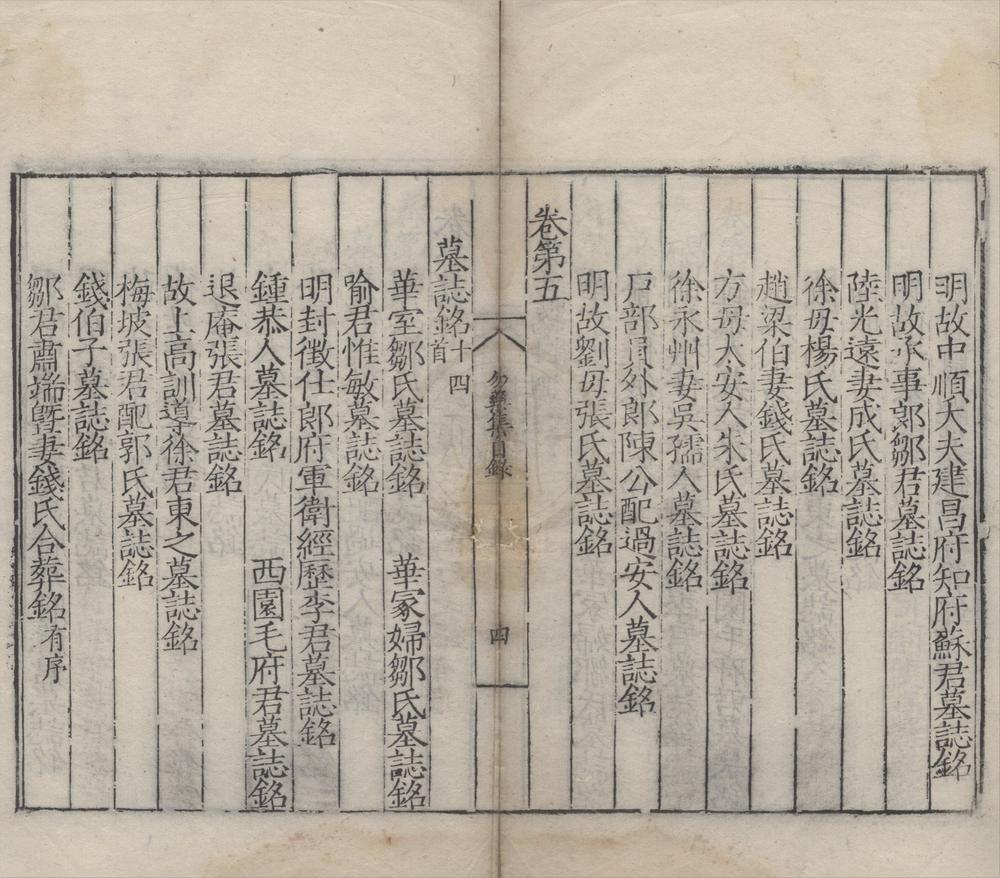 明故中順大夫建昌府知府蘇君墓誌銘
明故承事郎鄒君墓誌銘
陸光遠妻成氏墓誌銘
徐母楊氏墓誌銘
趙梁伯妻錢氏墓誌銘
方母太安人朱氏墓誌銘
徐永州妻吳孺人墓誌銘
戸部員外郎陳公配過安人墓誌銘
明故劉母張氏墓誌銘
卷第五
集目録
四
墓誌銘十四首
華室鄒氏墓誌銘 華冢婦鄒氏墓誌銘
喻君惟敏墓誌銘
明封徵仕郎府軍衛經歷李君墓誌銘
鍾恭人墓誌銘 西園毛府君墓誌銘
退庵張君墓誌銘
故上高訓導徐君東之墓誌銘
梅坡張君配郭氏墓誌銘
錢伯子墓誌銘
鄒君肅端曁妻錢氏合葬銘有序